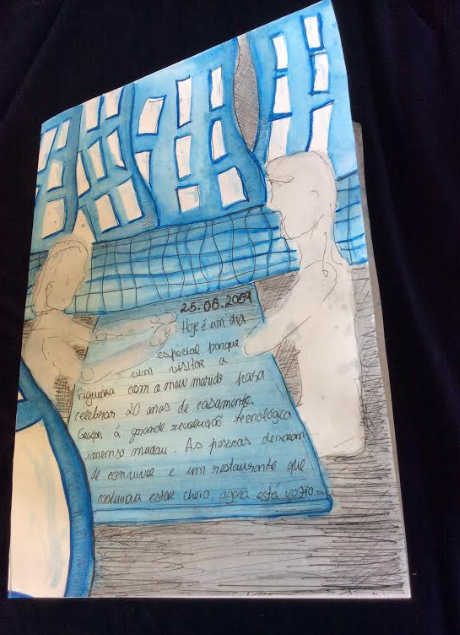 25.06.2059
Hoje é um dia
especial porque
vim visitar a
Figueira com o meu marido para
celebrar 20 anos de casamento.
Graças à grande revolução tecnológica
imenso mudou. As pessoas deixaram
de conviver e um restaurante que
costumava estar cheio, agora está vazio...